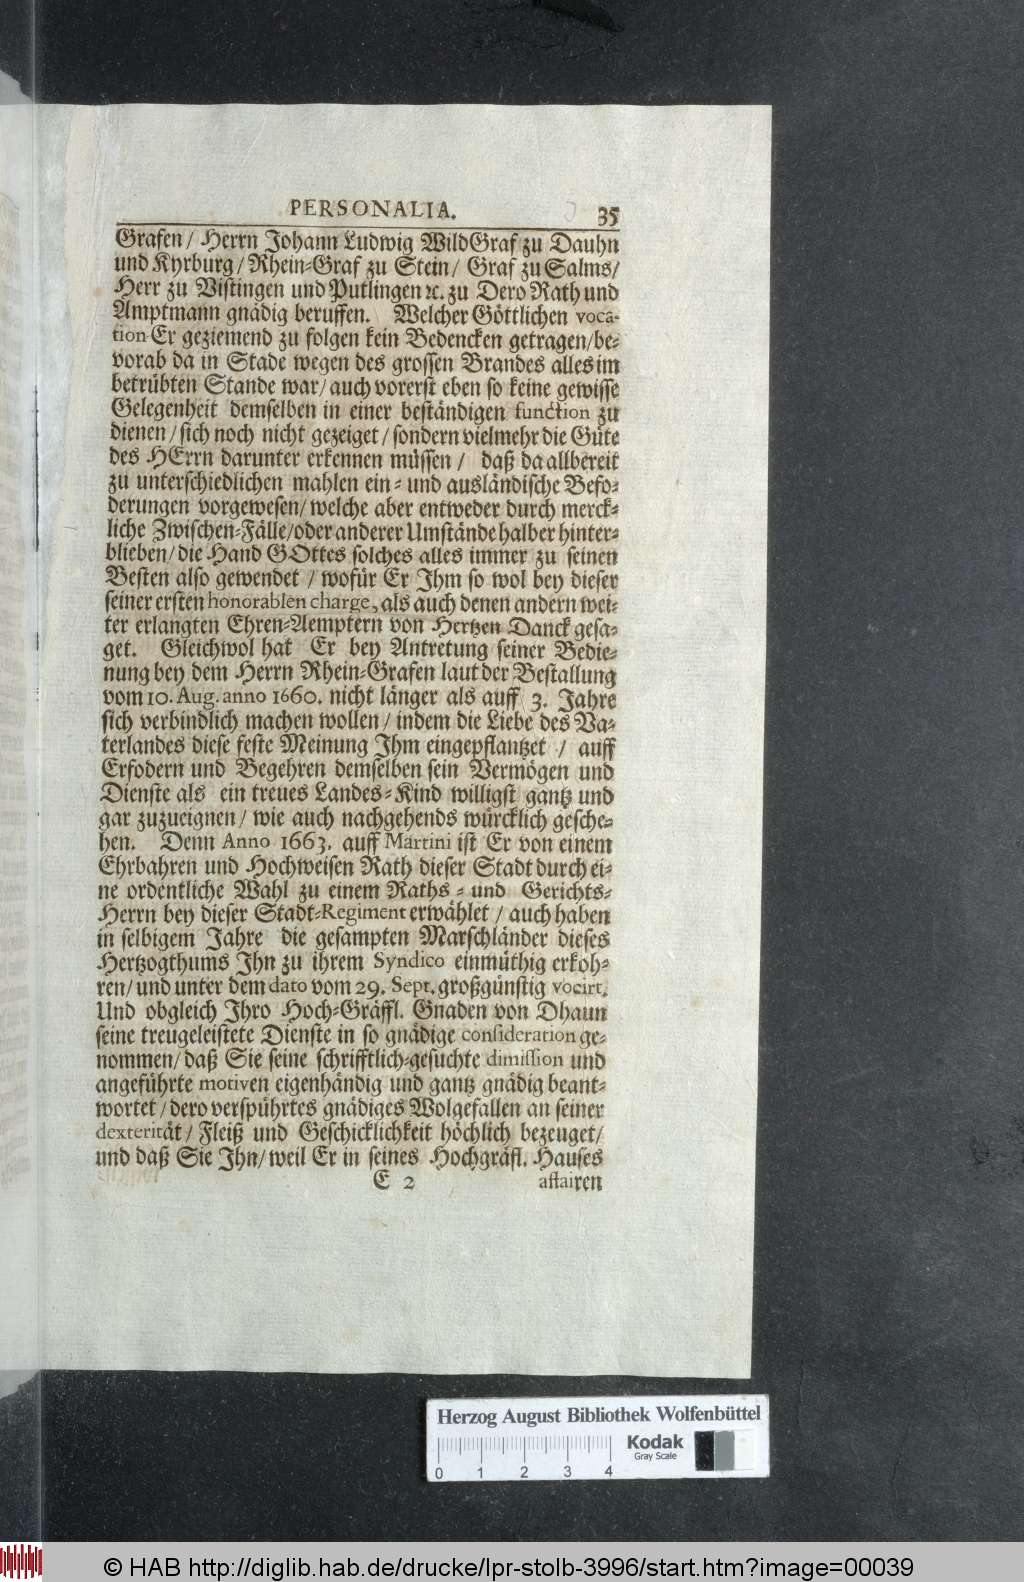 PERSONALIA. 35
Grafen / Herrn Johann Ludwig WildGraf zu Dauhn
und Kyrburg / Rhein-Graf zu Stein / Graf zu Salms /
Herr zu Vistingen und Putlingen ꝛc. zu Dero Rath und
Amptmann gnädig beruffen. Welcher Göttlichen voca-
tion Er geziemend zu folgen kein Bedencken getragen / be-
vorab da in Stade wegen des grossen Brandes alles im
betrübten Stande war / auch vorerst eben so keine gewisse
Gelegenheit demselben in einer beständigen function zu
dienen / sich noch nicht gezeiget / sondern vielmehr die Güte
des HErrn darunter erkennen müssen / daß da allbereit
zu unterschiedlichen mahlen ein- und ausländische Befo-
derungen vorgewesen / welche aber entweder durch merck-
liche Zwischen-Fälle / oder anderer Umstände halber hinter-
blieben / die Hand GOttes solches alles immer zu seinen
Besten also gewendet / wofür Er Ihm so wol bey dieser
seiner ersten honorablen charge, als auch denen andern wei-
ter erlangten Ehren-Aemptern von Hertzen Danck gesa-
get. Gleichwol hat Er bey Antretung seiner Bedie-
nung bey dem Herrn Rhein-Grafen laut der Bestallung
vom 10. Aug. anno 1660. nicht länger als auff 3. Jahre
sich verbindlich machen wollen / indem die Liebe des Va-
terlandes diese feste Meinung Ihm eingepflantzet / auff
Erfodern und Begehren demselben sein Vermögen und
Dienste als ein treues Landes-Kind willigst gantz und
gar zuzueignen / wie auch nachgehends würcklich gesche-
hen. Denn Anno 1663. auff Martini ist Er von einem
Ehrbahren und Hochweisen Rath dieser Stadt durch ei-
ne ordentliche Wahl zu einem Raths- und Gerichts-
Herrn bey dieser Stadt-Regiment erwählet / auch haben
in selbigem Jahre die gesampten Marschländer dieses
Hertzogthums Ihn zu ihrem Syndico einmüthig erkoh-
ren / und unter dem dato vom 29. Sept. großgünstig vocirt.
Und obgleich Ihro Hoch-Gräffl. Gnaden von Dhaun
seine treugeleistete Dienste in so gnädige consideration ge-
nommen / daß Sie seine schrifftlich-gesuchte dimission und
angeführte motiven eigenhändig und gantz gnädig beant-
wortet / dero verspührtes gnädiges Wolgefallen an seiner
dexterität / Fleiß und Geschicklichkeit höchlich bezeuget /
und daß Sie Ihn / weil Er in seines Hochgräfl. Hauses
E 2 affairen
Herzog August Bibliothek Wolfenbüttel
Kodak
Gray Scale
0 1 2 3 4
© HAB http://diglib.hab.de/drucke/lpr-stolb-3996/start.htm?image=00039